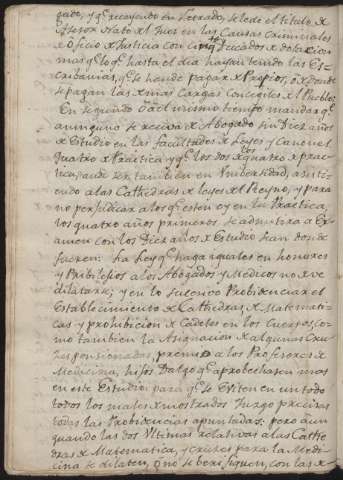 guez, y qᵉ recayendo en Letrado, se le dé el título de
Asesor Nato del Juez en las Causas Criminales
de Oficio de Justicia con cinqᵗᵃ Ducados de dotacion
mas qᵉ lo qᵉ hasta el dia hayan tenido las Es-
cribanias, qᵉ se heude pagar de Propios, de donde
se pagan las demas cargas concegiles del Pueblo:
En segundo y al mismo tiempo mandar qᵉ
a ninguno se reciva de Abogado sin Diez años
de Estudio en las facultades de Leyes y Canones
quatro de Practica y qᵉ los dos de quatro de prac-
tica, aun ser tambien en Universidad, asistⁱ-
endo a las Cathedras de leyes del Reyno, y para
no perjudicar a los qᵉ esten oy en la Practica,
los quatro años primeros se admitira a Ex-
amen con los Diez años de Estudio sean donde
fueren: La Ley qᵉ haga iguales en honores
y Pribilegios a los Abogados y Medicos no deve
dilatarse; y en lo sucesivo Probidenciar el
Establecimiento de Cathedras de Matemati-
cas y prohibicion de Cadetes en los Cuerpos, co-
mo tambien la Asignacion de algunas Cru-
zes pensionadas, premio a los Profesores de
Medicina, hijos Dalgo qᵉ aprobechasen mas
en este Estudio: para qᵉ se Eviten en un todo
todos los males demostrados Juzgo precisas
todas las Probidencias apuntadas; pero aun
quando las dos Ultimas relativas a las Cathe
dras de Matematica, y cruzes para la Medi-
cina se dilaten, o no se berifiquen, con las de